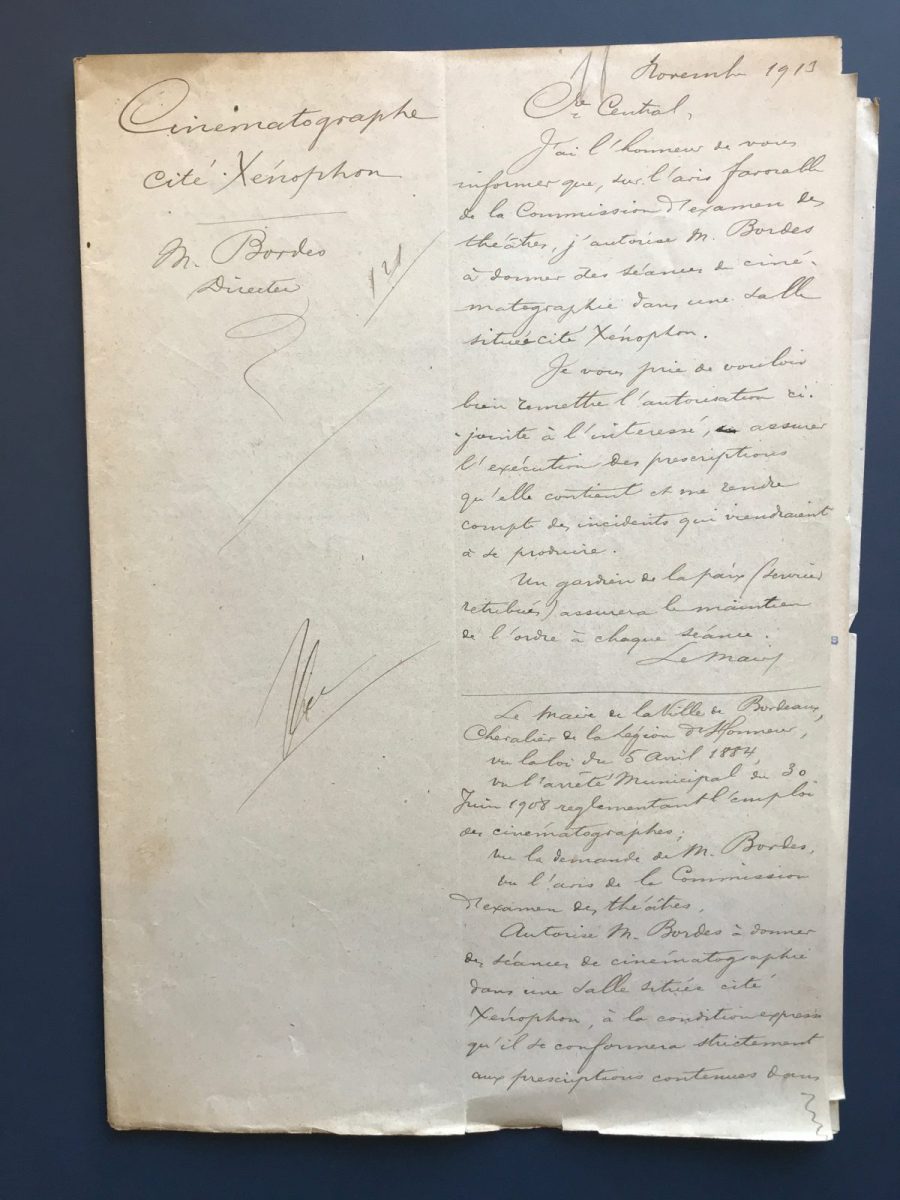 Cinématographe
cité Xénophon
M. Bordes
Directeur
121
Novembre 1913
Cre Central,
J'ai l'honneur de vous
informer que, sur l'avis favorable
de la Commission d'examen des
théâtres, j'autorise M. Bordes
à donner des séances de ciné-
matographie dans une salle
située cité Xénophon.
Je vous prie de vouloir
bien remettre l'autorisation ci-
jointe à l'interessé, assurer
l'exécution des prescriptions
qu'elle contient et me rendre
compte des incidents qui viendraient
à se produire.
Un gardien de la paix (service
retribués) assurera le maintien
de l'ordre à chaque séance.
Le Maire
Le Maire de la Ville de Bordeaux,
Chevalier de la Légion d'Honneur,
vu la loi du 5 Avril 1884,
vu l'arrêté Municipal du 30
Juin 1908 reglementant l'emploi
des cinématographes;
vu la demande de M. Bordes,
vu l'avis de la Commission
d'examen des théâtres,
Autorise M. Bordes à donner
des séances de cinématographie
dans une salle située cité
Xénophon, à la condition expresse
qu'il se conformera strictement
aux prescriptions contenues dans